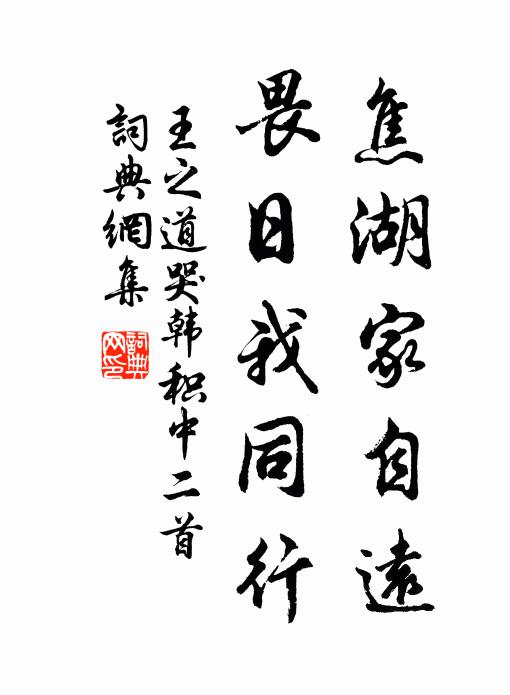 焦湖家自遠
畏日我同行
王之道哭韩积中二首
詞典網集
詞典网印